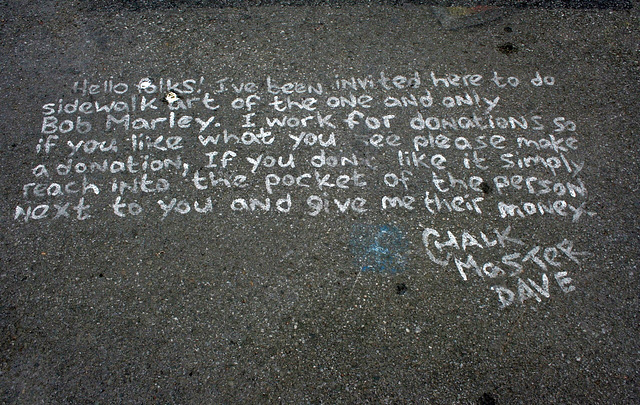 Hello folks! I've been invited here to do
sidewalk art of the one and only
Bob Marley. I work for donations so
if you like what you see please make
a donation, If you don't like it simply
reach into the pocket of the person
next to you and give me their money.
CHALK
MASTER
DAVE